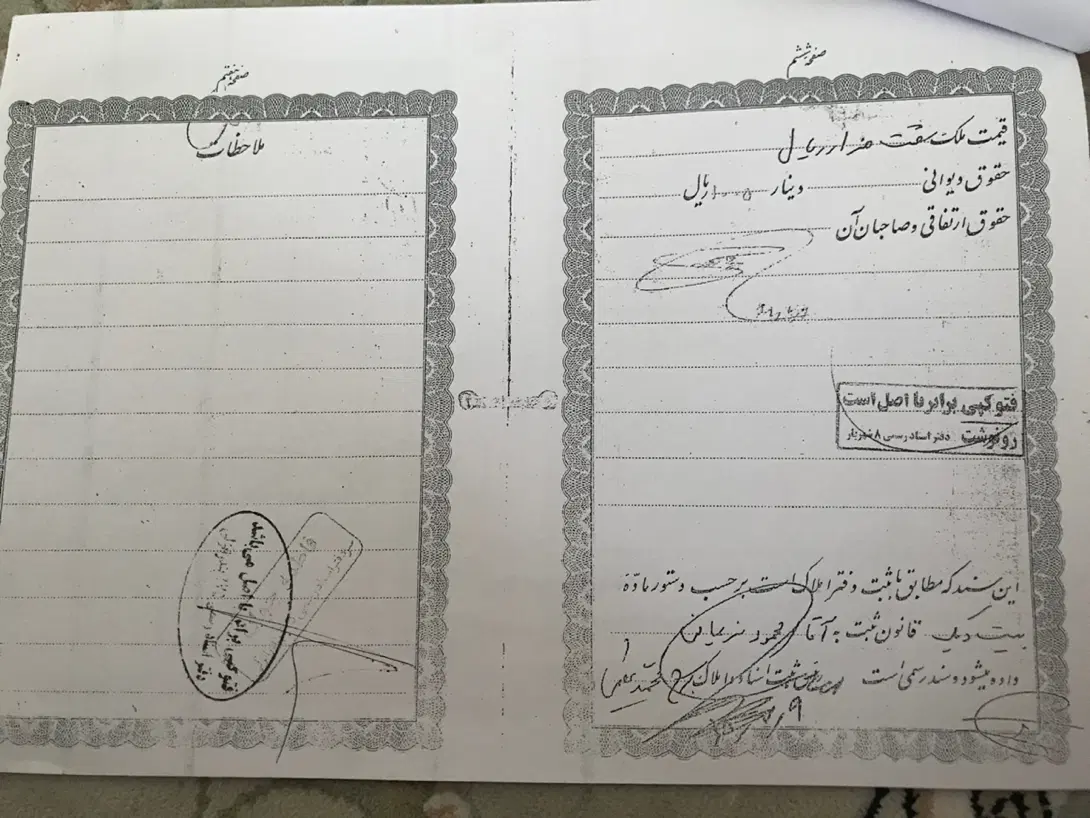 صفحه ششم
قیمت ملک هفت هزار ریال
حقوق دیوانی دینار ریال
حقوق ارتفاقی و صاحبان آن
فتوکپی برابر با اصل است
رونوشت دفتر اسناد رسمی ۸ شهریار
این سند که مطابق با ثبت دفتر املاک است بر حسب دستور ماده
بیست و یک قانون ثبت به آقای محمود نریمانی
داده میشود و سند رسمی است ثبت اسناد و املاک کرج
صفحه هفتم
ملاحظات
فتوکپی برابر با اصل می باشد
دفتر اسناد رسمی